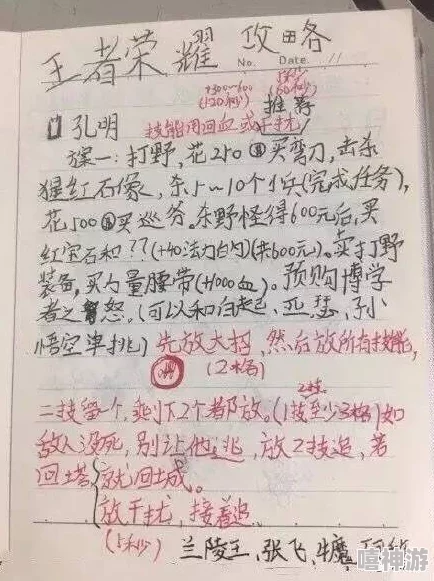 王者荣耀 攻略
No. Date
+300~600 (60秒)
(120秒) 推荐
孔明 技能用回血或干扰
方案一:打野,花250买弯刀,击杀
猩红石像,杀5~10个小兵(完成任务),
花500买巡守。杀野怪得600元后,买
红宝石和??(+40法力白勺)(共600元)。卖打野
装备,买力量腰带(+1000血)。预购博学
者之怒。(可以和白起、亚瑟、孙
悟空单挑)先放大招,然后放所有技能,
(2格)
2技
二技留一个,剩下2个都放。(1技至少3格)如
敌人没死,别让他逃,放2技追,若
回塔 就回城。
放干扰,接着追。
(5秒)
兰陵王,张飞,牛魔
嘻神游